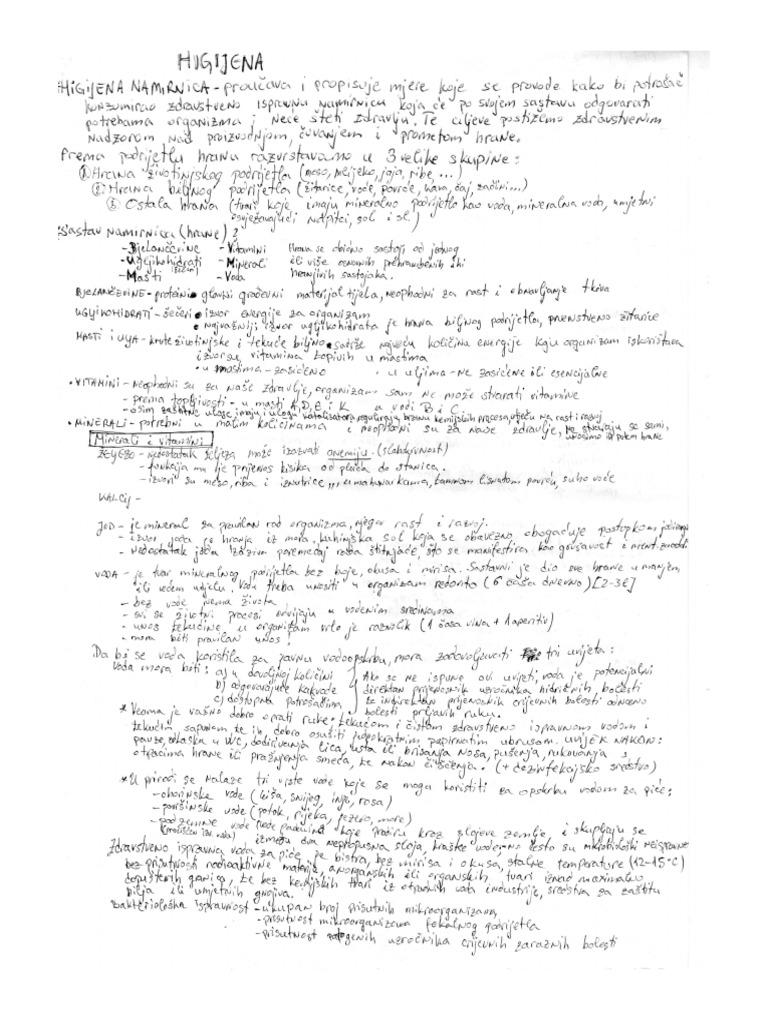 HIGIJENA
HIGIJENA NAMIRNICA - proučava i propisuje mjere koje se provode kako bi potrošač
konzumirao zdravstveno ispravnu namirnicu koja će po svojem sastavu odgovarati
potrebama organizma i neće šteti zdravlju. Te ciljeve postižemo zdravstvenim
nadzorom nad proizvodnjom, čuvanjem i prometom hrane.
Prema podrijetlu hranu razvrstavamo u 3 velike skupine:
① Hrana životinjskog podrijetla (meso, mlijeko, jaja, ribe,...)
② Hrana biljnog podrijetla (žitarice, voće, povrće, kava, čaj, začini...)
③ Ostala hrana (tvari koje imaju mineralno podrijetlo kao voda, mineralna voda, umjetni
osvježavajući napitci, sol i sl.)
Sastav namirnica (hrane)?
- Bjelančevine - Vitamini Hrana se obično sastoji od jednog
- Ugljikohidrati - Minerali ili više osnovnih prehrambenih ili
- Masti - Voda hranjivih sastojaka.
BJELANČEVINE - proteini • glavni građevni materijal tijela, neophodni za rast i obnavljanje tkiva
UGLJIKOHIDRATI - šećeri • izvor energije za organizam
• najvažniji izvor ugljikohidrata je hrana biljnog podrijetla, prvenstveno žitarice
MASTI I ULJA - krute životinjske i tekuće biljne • sadrže najveću količinu energije koju organizam iskorištava
izvor su vitamina topivih u mastima
• u mastima - zasićeno • u uljima - ne zasićene ili esencijalne
• VITAMINI - neophodni su za naše zdravlje, organizam sam ne može stvarati vitamine
- prema topljivosti - u masti A, D, E i K a vodi B i C.
- osim zaštitne uloge imaju i ulogu katalizatora reguliraju brzinu kemijskih procesa, utječu na rast i razvoj
• MINERALI - potrebni u malim količinama i neophodni su za naše zdravlje, ne stvaraju se sami,
unosimo ih putem hrane
Minerali i vitamini
ŽELJEZO - nedostatak željeza može izazvati anemiju (slabokrvnost)
- funkcija mu je prijenos kisika od pluća do stanica.
- izvori su meso, riba i iznutrice, u mahunarkama, tamnom lisnatom povrću, suho voće
KALCIJ -
JOD - je mineral za pravilan rad organizma, njegov rast i razvoj.
- izvor joda je hrana iz mora, kuhinjska sol koja se obavezno obogaćuje postupkom jodiranja
- Nedostatak joda izaziva poremećaj rada štitnjače, što se manifestira kao gušavost i ment.
VODA - je tvar mineralnog podrijetla bez boje, okusa i mirisa. Sastavni je dio sve hrane u manjem
ili većem udjelu. Vodu treba unositi u organizam redovito (6 čaša dnevno) [2-3l]
- bez vode nema života
- svi se životni procesi odvijaju u vodenim sredinama
- unos tekućine u organizam vrlo je različit (1 čaša vina + 1 aperitiv)
- mora biti pravilan unos!
Da bi se voda koristila za javnu vodoopskrbu, mora zadovoljavati tri uvijeta:
Voda mora biti: a) u dovoljnoj količini Ako se ne ispune ovi uvijeti, voda je potencijalni
b) odgovarajuće kakvoće direktan prijenosnik uzročnika hidričnih bolesti
c) dostupna potrošačima te indirektan prijenosnik crijevnih bolesti odnosno
bolesti prljavih ruku.
* Veoma je važno dobro oprati ruke tekućom i čistom zdravstveno ispravnom vodom i
tekućim sapunom te ih dobro osušiti jednokratnim papirnatim ubrusom. UVIJEK NAKON:
pauze, odlaska u WC, dodirivanja lica, usta ili brisanja nosa, pušenja, rukovanja s
otpacima hrane ili pražnjenja smeća, te nakon čišćenja. (+ dezinfekcijsko sredstvo)
* U prirodi se nalaze tri vrste vode koje se mogu koristiti za opskrbu vodom za piće:
- oborinske vode (kiša, snijeg, inje, rosa)
- površinske vode (potok, rijeka, jezero, more)
- podzemne vode koje prodiru kroz slojeve zemlje i skupljaju se
između dva nepropusna sloja, kraške vode, no često su mikrobiološki neispravne
Zdravstveno ispravna voda za piće je bistra, bez mirisa i okusa, stalne temperature (12-15°C)
bez prisutnosti radioaktivne materije, anorganskih ili organskih tvari iznad maximalno
dopuštenih granica, te bez kemijskih tvari iz otpadnih voda industrije, sredstva za zaštitu
bilja ili umjetnih gnojiva.
Bakteriološka ispravnost - ukupan broj prisutnih mikroorganizama
- prisutnost mikroorganizama fekalnog podrijetla
- prisutnost patogenih uzročnika crijevnih zaraznih bolesti